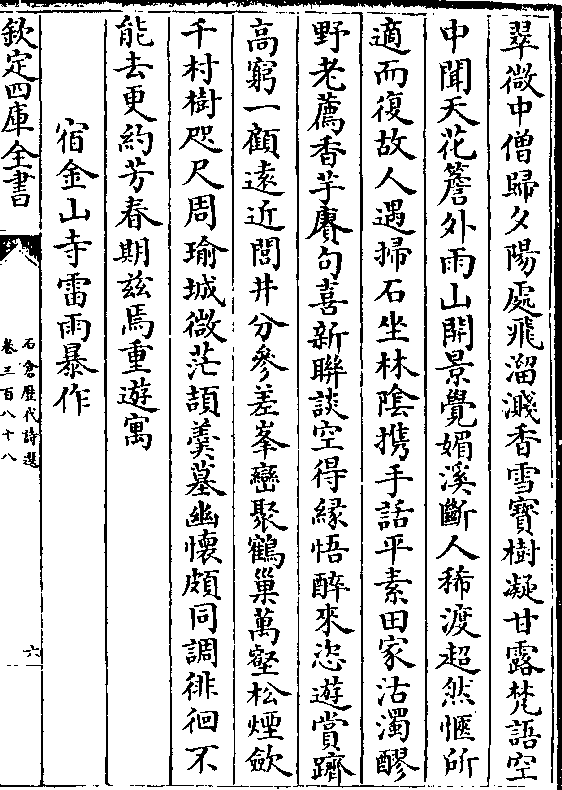 翠微中僧歸夕陽處飛溜濺香雪寳樹凝甘露梵語空
中聞天花簷外雨山開景覺媚溪斷人稀渡超然愜所
適而復故人遇掃石坐林隂携手話平素田家沽濁醪
野老薦香芋賡句喜新聨談空得縁悟醉來恣遊賞躋
高窮一顧逺近閭井分參差峯巒聚鶴巢萬壑松煙歛
千村樹咫尺周瑜城微茫頡羮墓幽懐頗同調徘徊不
能去更約芳春期兹焉重遊寓
宿金山寺雷雨暴作
欽定四庫全書
石倉歴代詩選
卷三百八十八
六